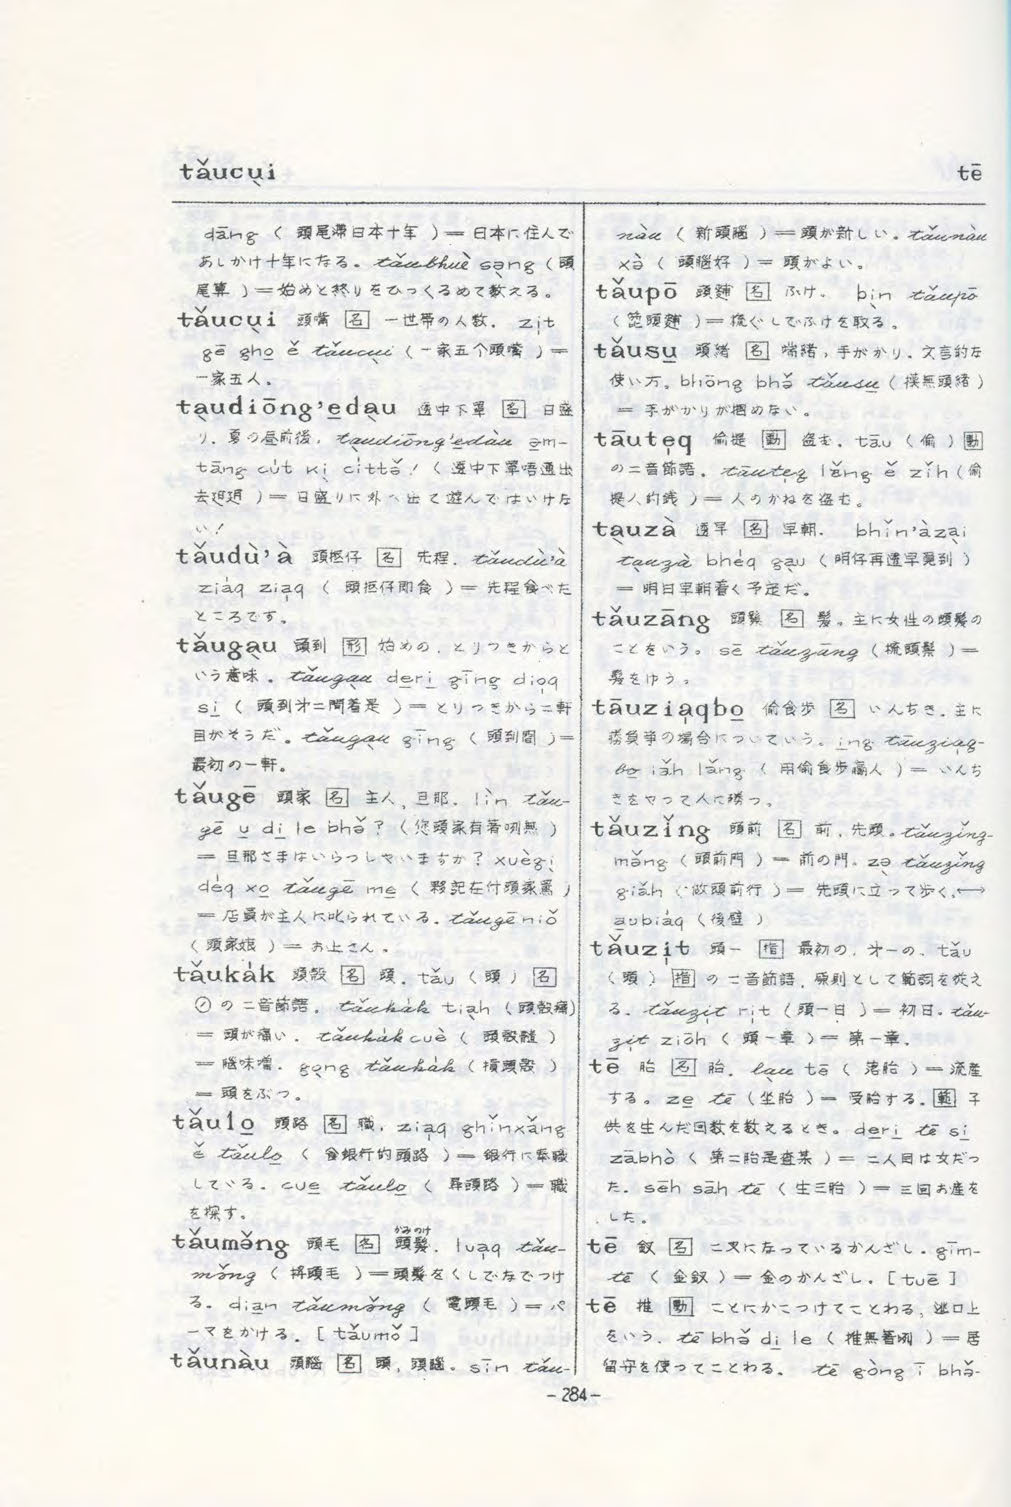 tǎucụi
tē
dāng ( 頭尾滯日本十年 )= 日本に住んで
あしかけ十年になる。tǎubhuè sə̣ng (頭
尾算 )=始めと終りをひっくるめて教える。
tǎucụi 頭嘴 [名] 一世帯の人数. zịt
gē gho̲ ě tǎucụi (一家五个頭嘴 )=
一家五人。
tạudiōng'e̲dạu 透中下罩 [名] 日盛
り. 夏の昼前後. tạudiōng'e̲dạu ə̲m-
tāng cút kị cíttə̌! ( 透中下罩唔通出
去𨑨迌 )= 日盛りに外へ出て遊んではいけな
い!
tǎudù'à 頭抵仔 [名] 先程. tǎudù'à
ziáq ziaq ( 頭抵仔即食 )= 先程食べた
ところです。
tǎugạu 頭到 [形] 始めの. とりつきからと
いう意味. tǎugạu de̲ri̲ gīng dioq
si̲ ( 頭到才二間着是 )= とりつきから二軒
目がそうだ。tǎugạu gīng ( 頭到間 )=
最初の一軒。
tǎugē 頭家 [名] 主人, 旦那. lìn tǎu-
gē u̲ di̲ le bhə̌? (您頭家有著咧無 )
= 旦那さまはいらっしゃいますか? xuègị
déq xo̲ tǎugē me̲ ( 夥記在付頭家罵 )
=店員が主人に叱られている. tǎugēniǒ
( 頭家娘 )= お上さん.
tǎukák 頭殼 [名] 頭. tǎu (頭) [名]
㋑の二音節語. tǎukák tiạh (頭殼痛)
= 頭が痛い. tǎukák cuè ( 頭殼髓 )
= 脳味噌. gọng tǎukák ( 摃頭殼 )
= 頭をぶつ。
tǎulo̲ 頭路 [名] 職. ziaq ghǐnxǎng
ě tǎulo̲ ( 食銀行的頭路 )=銀行に奉職
している. cue̲ tǎulo̲ ( 尋頭路 )=職
を探す。
tǎumə̌ng 頭毛 [名] 頭髪(かみのけ). luaq tǎu-
mə̌ng ( 捋頭毛 )=頭髪をくしでなでつけ
る. dian̲ tǎumə̌ng ( 電頭毛 )= パ
ーマをかける. [ tǎumǒ ]
tǎunàu 頭腦 [名] 頭, 頭脳. sīn tǎu-
nàu ( 新頭腦 )=頭が新しい. tǎunàu
xə̀ ( 頭腦好 )= 頭がよい。
tǎupō 頭䴺 [名] ふけ. bịn tǎupō
( 篦頭䴺 )= 梳ぐしでふけを取る。
tǎusu̲ 頭緒 [名] 端緒, 手がかり. 文言的な
使い方. bhōng bhə̌ tǎusu̲ (摸無頭緒)
= 手がかりが掴めない。
tāutẹq 偷提 [動] 盗む. tāu (偷) [動]
の二音節語. tāutẹq lə̌ng ě zíh (偷
提人的錢 )= 人のかねを盗む。
tạuzà 透早 [名] 早朝. bhǐn'àzại
tạuzà bhéq gạu ( 明仔再透早覓到 )
= 明日早朝着く予定だ.
tǎuzāng 頭鬃 [名] 髪. 主に女性の頭髪の
ことをいう. sē tǎuzāng (梳頭鬃 )=
髪をゆう.
tāuziaqbo̲ 偷食步 [名] いんちき. 主に
勝負事の場合についていう. ịng tāuziaq-
bo̲ iǎh lǎng ( 用偷食步贏人 )= いんち
きをやって人に勝つ.
tǎuzǐng 頭前 [名] 前, 先頭. tǎuzǐng-
mə̌ng (頭前門 )= 前の門. zə̣ tǎuzǐng
giǎh ( 做頭前行 )= 先頭に立って歩く.⟷
a̲ubiáq (後壁 )
tǎuzịt 頭一 [指] 最初の. 才一の. tǎu
(頭) [指] の二音節語. 原則として範詞を従え
る. tǎuzịt rịt (頭一日 )=初日. tǎu-
zịt ziōh ( 頭一章 )= 第一章.
tē 胎 [名] 胎. lạu tē ( 落胎 )=流産
する. ze̲ tē (坐胎 )= 受胎する. [範] 子
供を生んだ回数を教えるとき. de̲ri̲ tē si̲
zābhò ( 第二胎是查某 )= 二人目は女だっ
た. sēh sāh tē ( 生三胎 )= 三回お産を
した。
tē 釵 [名] 二叉になっているかんざし. gīm-
tē ( 金釵 )= 金のかんざし. [ tuē ]
tē 推 [動] ことにかこつけてことわる, 逃口上
をいう. tē bhə̌ di̲ le ( 推無著咧 )= 居
留守を使ってことわる. tē gòng ī bhə̌-
- 284 -